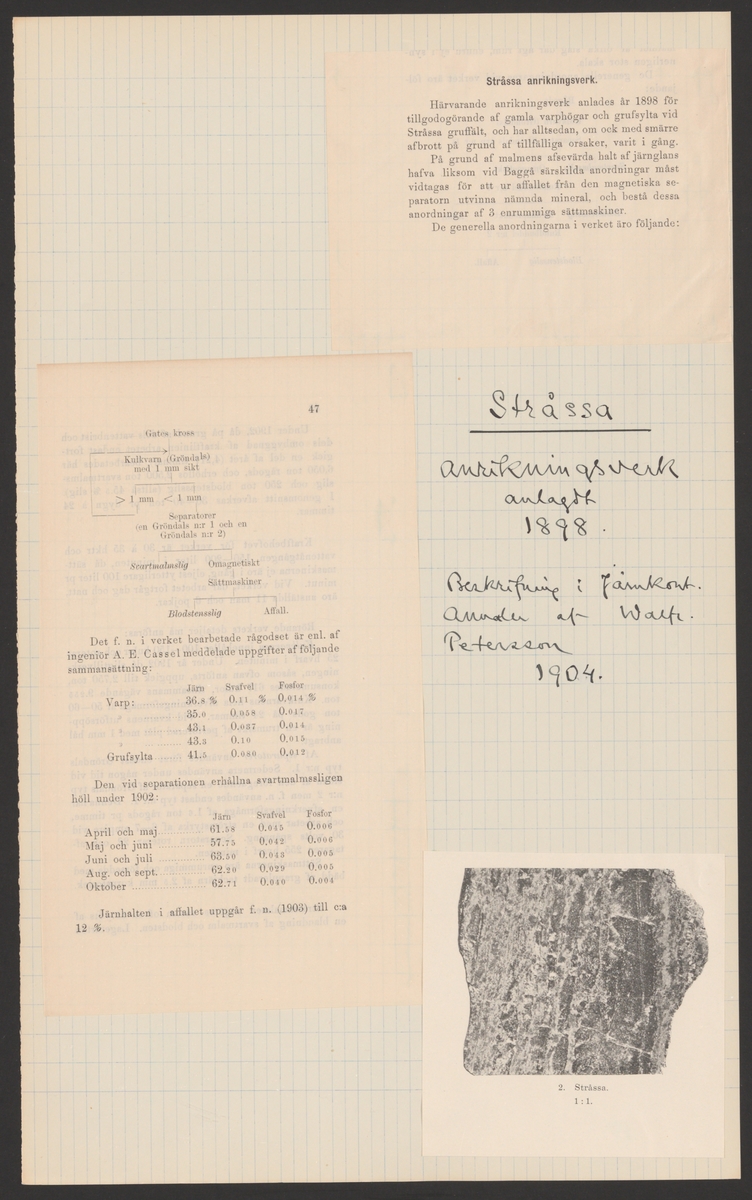 Stråssa anrikningsverk.
Härvarande anrikningsverk anlades år 1898 för
tillgodogörande af gamla varphögar och grufsylta vid
Stråssa gruffält, och har alltsedan, om ock med smärre
afbrott på grund af tillfälliga orsaker, varit i gång.
På grund af malmens afsevärda halt af järnglans
hafva liksom vid Baggå särskilda anordningar måst
vidtagas för att ur affallet från den magnetiska se-
paratorn utvinna nämnda mineral, och bestå dessa
anordningar af 3 enrummiga sättmaskiner.
De generella anordningarna i verket äro följande:
47
Gates kross
Kulkvarn (Gröndals)
med 1 mm sikt
> 1 mm < 1 mm
Separatorer
(en Gröndals n:r 1 och en
Gröndals n:r 2)
Svartmalmslig Omagnetiskt
Sättmaskiner
Blodstensslig Affall.
Det f. n. i verket bearbetade rågodset är enl. af
ingeniör A. E. Cassel meddelade uppgifter af följande
sammansättning:
Järn Svafvel Fosfor
Varp: 36.8 % 0.11 % 0.014 %
" 35.0 0.058 0.017
" 43.1 0.037 0.014
" 43.3 0.10 0.015
Grufsylta 41.5 0.080 0.012
Den vid separationen erhållna svartmalmssligen
höll under 1902:
Järn Svafvel Fosfor
April och maj 61.58 0.045 0.006
Maj och juni 57.75 0.042 0.006
Juni och juli 63.50 0.043 0.005
Aug. och sept. 62.20 0.029 0.005
Oktober 62.71 0.040 0.004
Järnhalten i affallet uppgår f. n. (1903) till c:a
12 %.
Stråssa
anrikningsverk
anlagdt
1898.
Beskrifning i Järnkont.
Annaler af Walfr.
Petersson
1904.
2. Stråssa.
1:1.